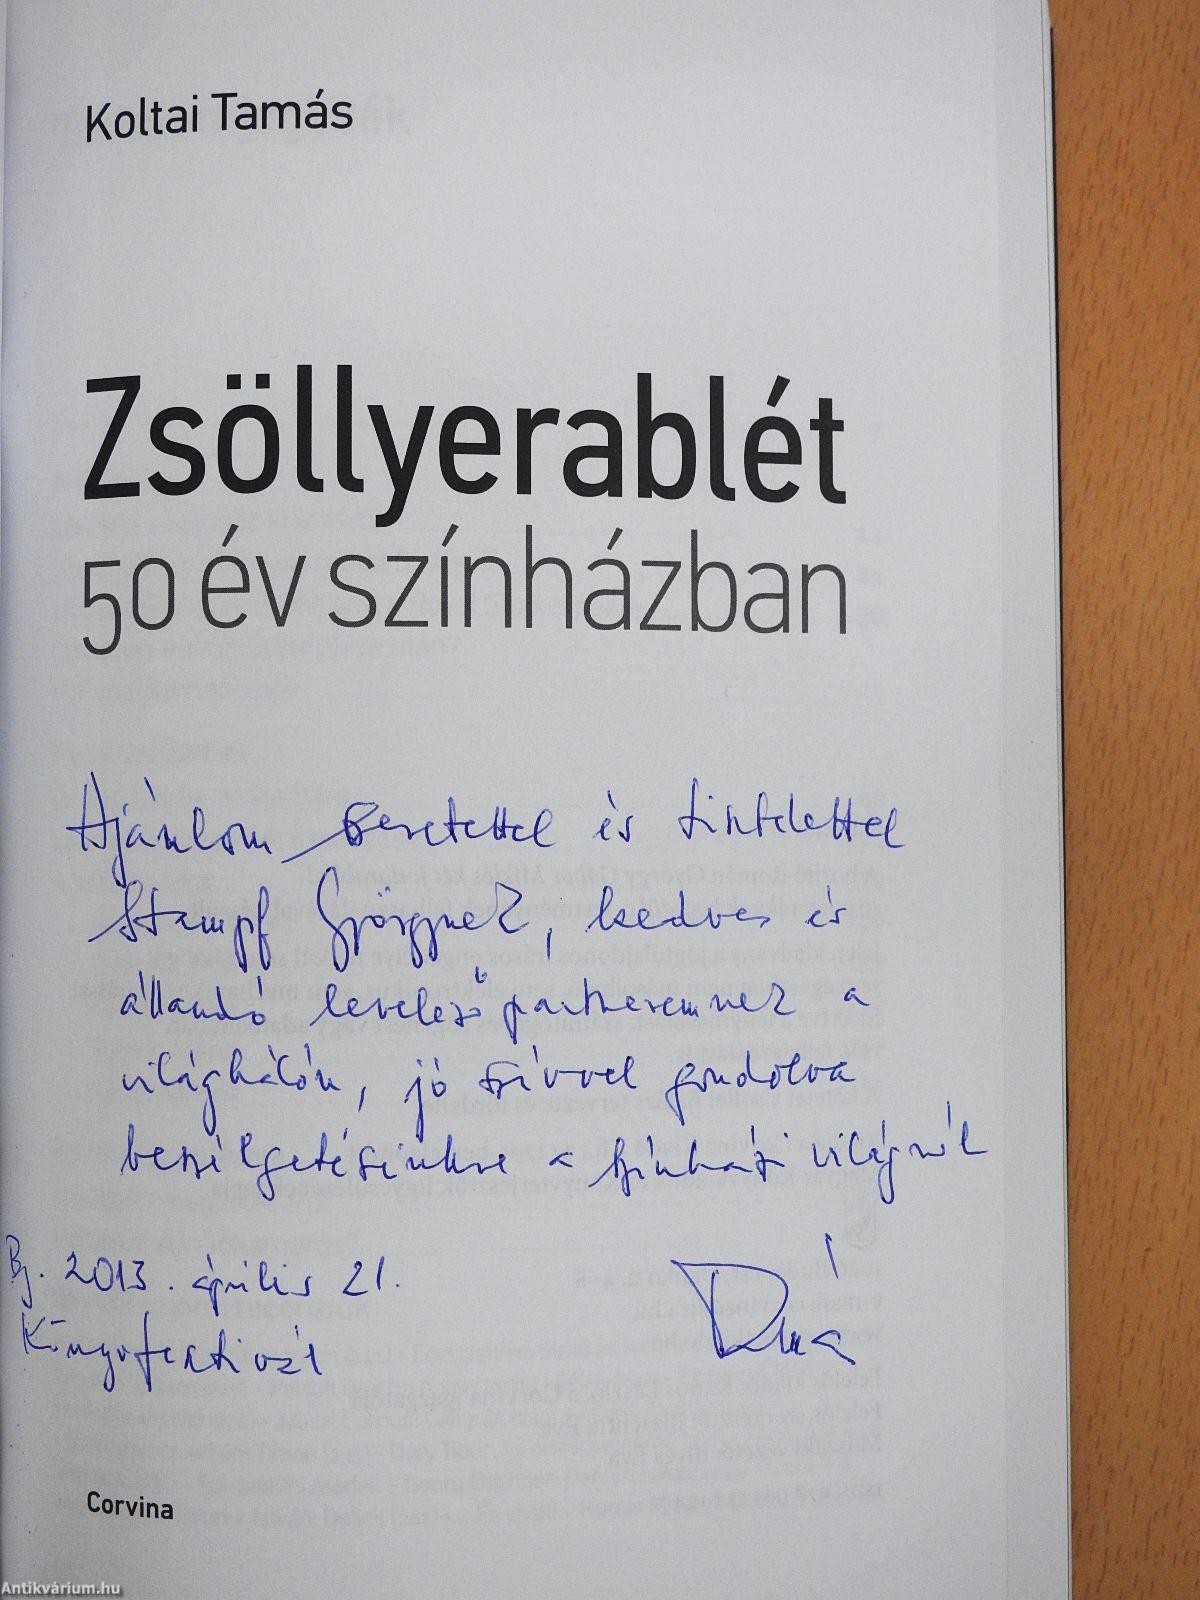 Koltai Tamás
Zsöllyerablét
50 év színházban
Ajánlom szeretettel és tisztelettel
Stumpf Györgynek, kedves és
állandó levelezőpartneremnek a
világhálón, jó szívvel gondolva
beszélgetéseinkre a színház világáról
Bp. 2013. április 21.
Könyvfesztivál
Corvina
Antikvárium.hu